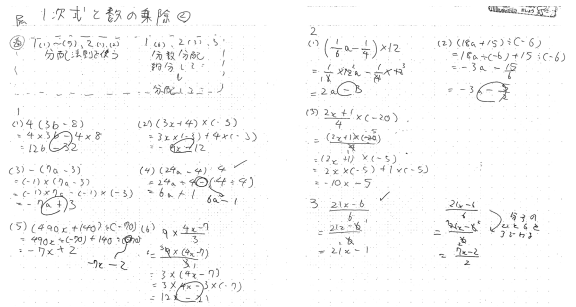 1次式と数の乗除②
1(1)~(5), 2(1),(2)
分配法則を使う
1(6), 2(3), 3
分数分配
約分して
分配して
1
(1) 4(3b-8)
= 4×3b-4×8
= 12b-32
(2) (3x+4)×(-5)
= 3x×(-5)+4×(-5)
(3) -(7a-3)
= (-1)×(7a-3)
= (-1)×7a-(-1)×(-3)
= -7a+3
(4) (24a-4)÷4
= 6a+1
6a-1
(5) (490x+140)÷(-70)
= 490x÷(-70)+140÷(-70)
= -7x+2
-7x-2
(6) 9×(4x-7)/3
= 9×(4x-7)/3
= 3×(4x-7)
= 3×4x-3×(-7)
= 12x-21
2
(1) (1/6a-1/4)×12
= 1/6×12a-1/4×12
= 2a-3
(2) (18a+15)÷(-6)
= 18a÷(-6)+15÷(-6)
= -3a-15/6
= -3a-5/2
(3) (2x+1)/4×(-20)
= (2x+1)×(-20)/4
= (2x+1)×(-5)
= 2x×(-5)+1×(-5)
= -10x-5
3 (21x-6)/6
= (21x-6)/6
= 21x-1
(21x-6)/6
= (21x-6)/6
= (7x-2)/2
分子の
21と6を
3でわる